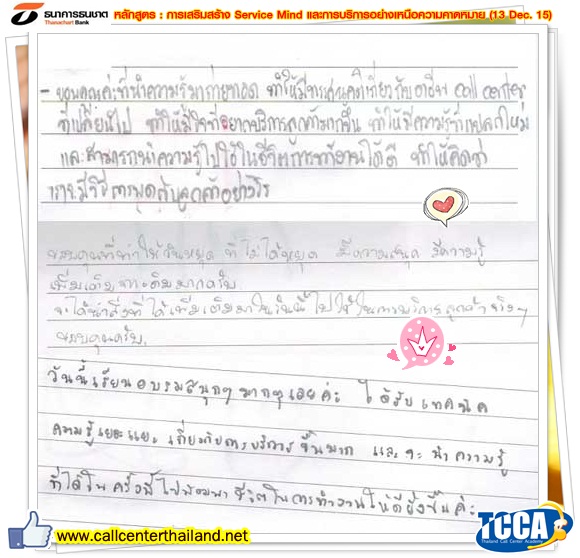 ธนาคารธนชาต
Thanachart Bank
หลักสูตร : การเสริมสร้าง Service Mind และการบริการอย่างเหนือความคาดหมาย (13 Dec. 15)
- ขอบคุณค่ะที่นำความรู้มาถ่ายทอด ทำให้มีทัศนคติเกี่ยวกับอาชีพ call center
ที่เปลี่ยนไป ทำให้มีใจที่อยากบริการลูกค้ามากขึ้น ทำให้มีความรู้ที่แปลกใหม่
และสามารถนำความรู้ไปใช้ในชีวิตการทำงานได้ดี ทำให้คิดว่า
เราจะมีวิธีการพูดกับลูกค้าอย่างไร
ขอบคุณที่ทำให้วันหยุด ที่ไม่ได้หยุด มีความสนุก มีความรู้
เพิ่มเติมจากเดิมมากครับ
จะได้นำสิ่งที่ได้เพิ่มเติมมาในวันนี้ไปใช้ในการบริการลูกค้าจริงๆ
ขอบคุณครับ.
วันนี้เรียนอบรมสนุกๆ มากๆ เลยค่ะ ได้รับเทคนิค
ความรู้เยอะแยะ เกี่ยวกับการบริการขึ้นมาก และจะนำความรู้
ที่ได้ในครั้งนี้ไปพัฒนาชีวิตในการทำงานให้ดียิ่งขึ้นค่ะ
www.callcenterthailand.net
TCCA
Thailand Call Center Academy